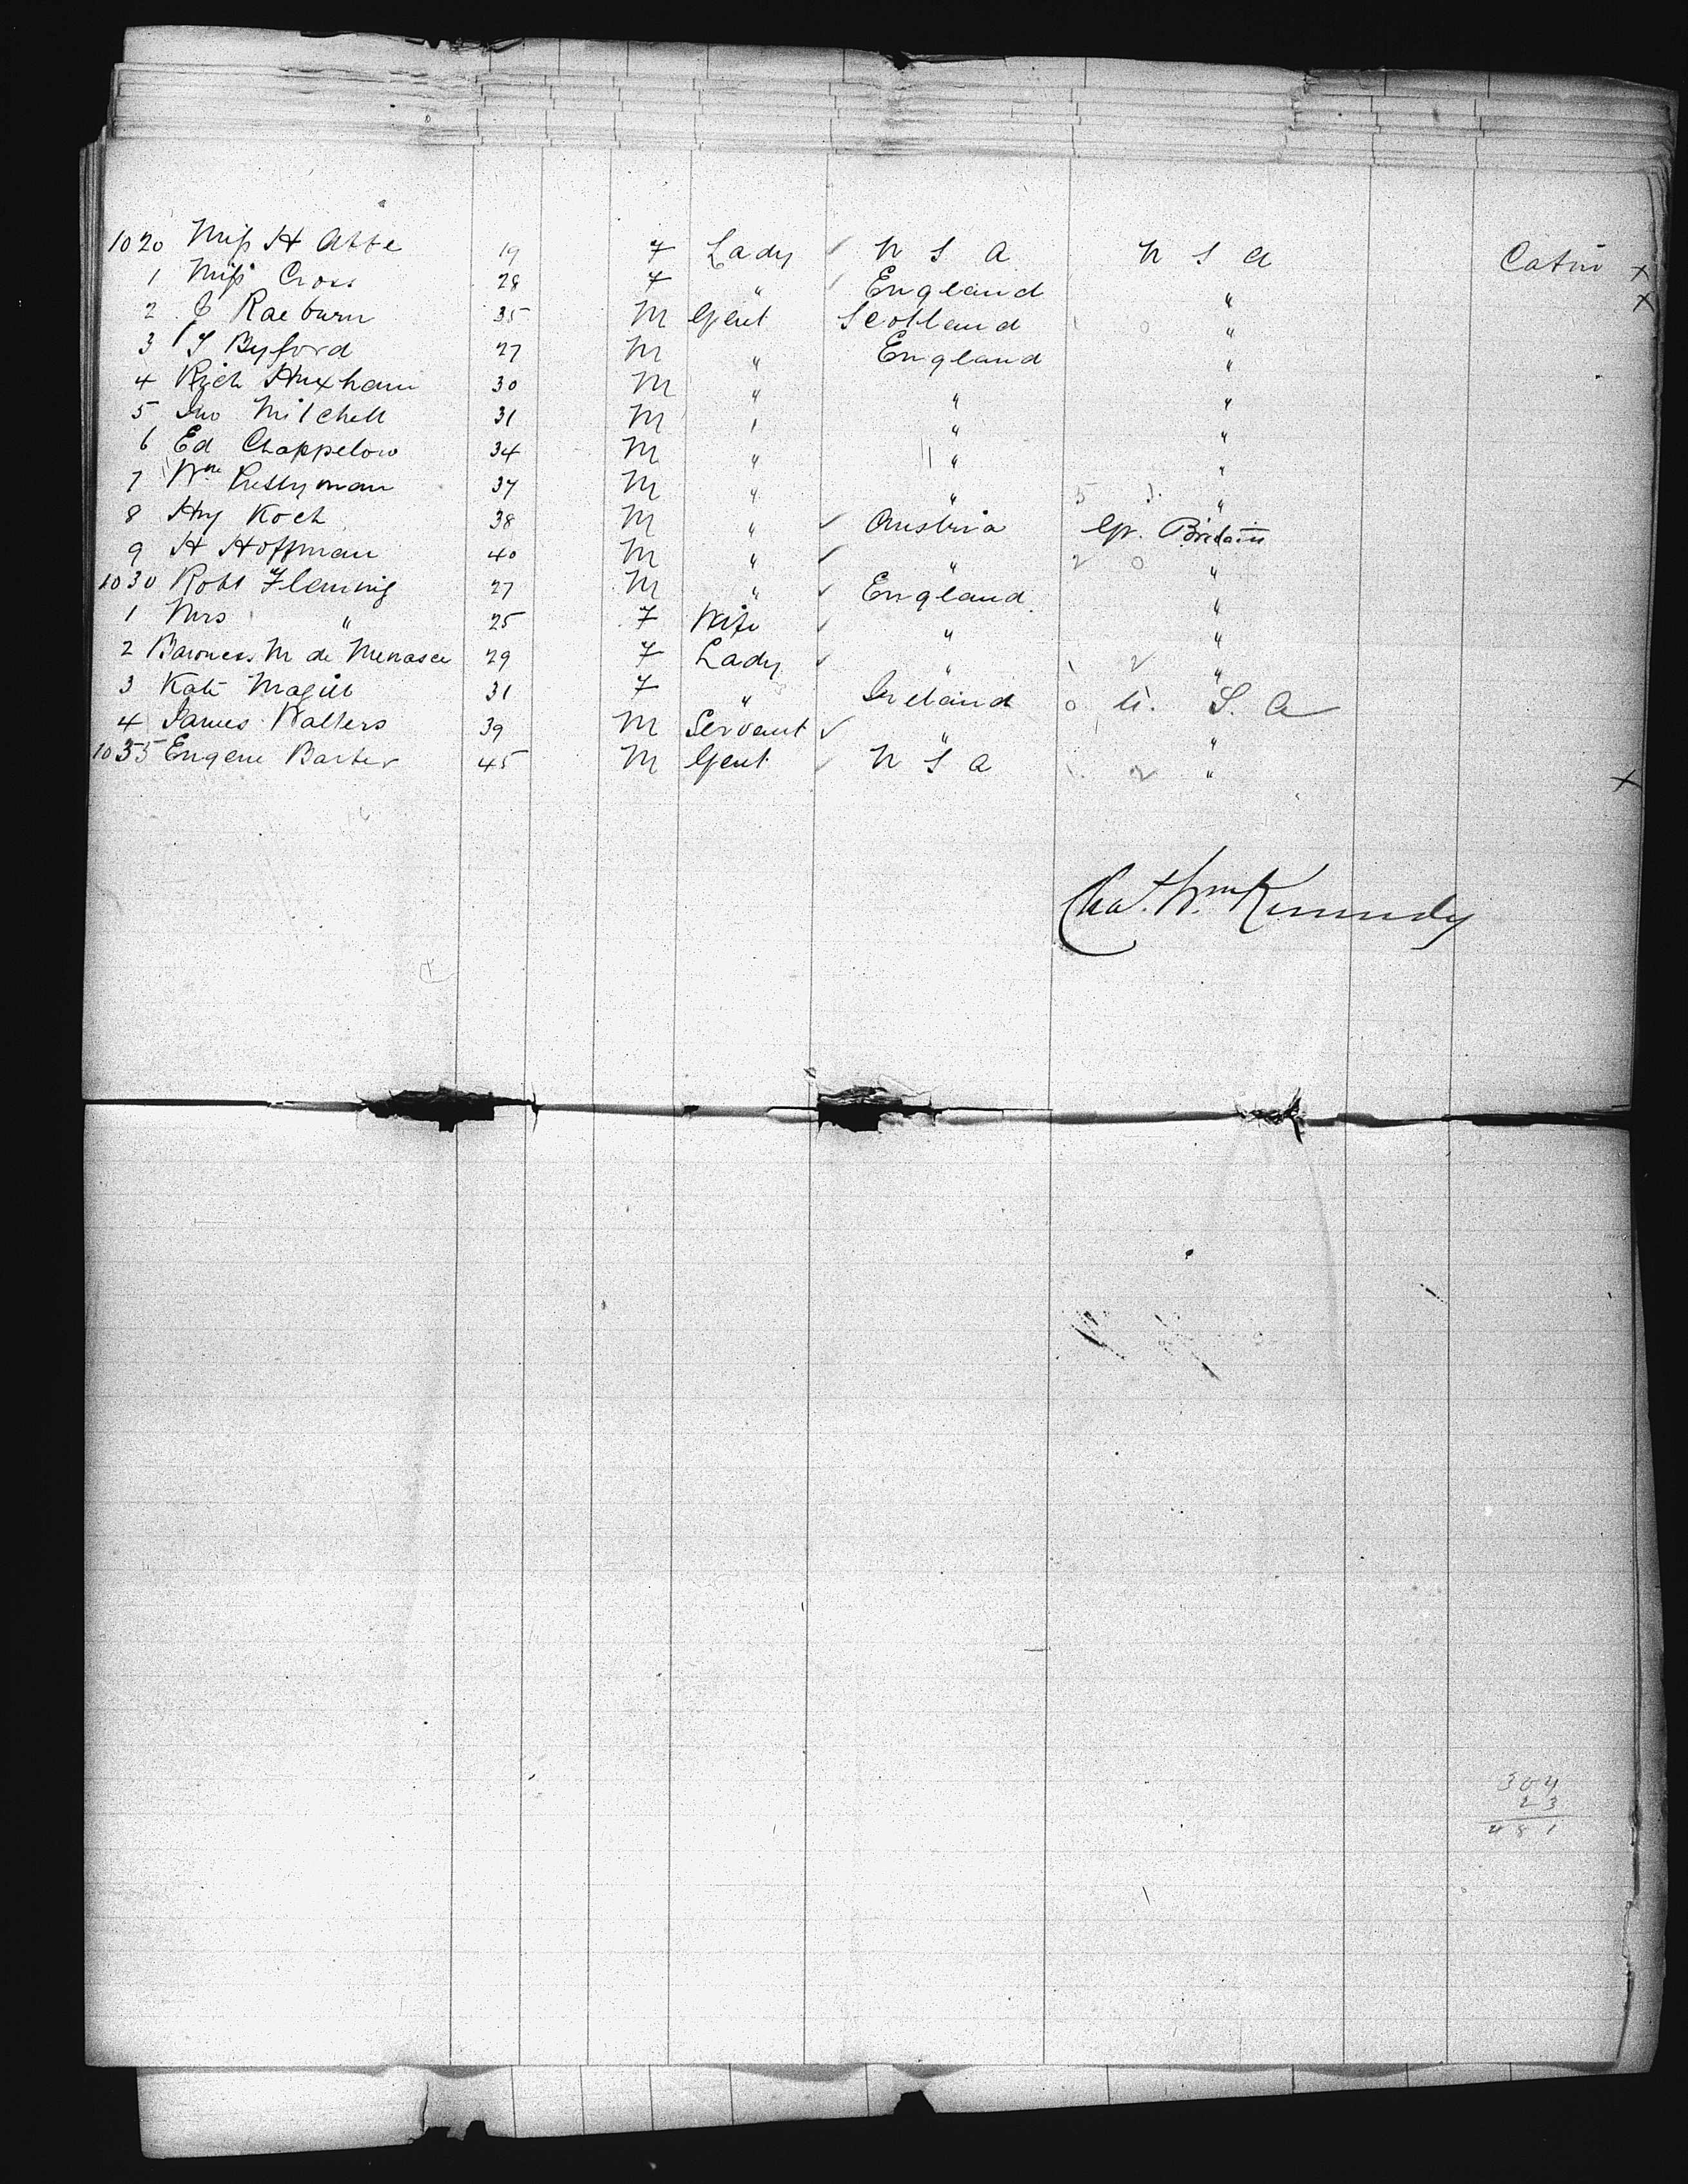 1020 Miss H Abbe 19 F Lady ✓ U S A U S A Cabin X
1 Miss Cross 28 F " ✓ England " X
2 J Raeburn 35 M Gent Scotland "
3 Byford 27 M " England "
4 Rich Huxham 30 M " " "
5 Jno Mitchell 31 M " " "
6 Ed Chappelow 34 M " " "
7 Wm Prettyman 37 M " " "
8 Hy Koch 38 M " ✓ Austria Gr. Britain
9 H Hoffman 40 M " ✓ " "
1030 Robt Fleming 27 M " ✓ England "
1 Mrs " 25 F Wife ✓ " "
2 Baroness M de Menasce 29 F Lady ✓ " "
3 Kate Magill 31 F " Ireland U. S. A
4 James Walters 39 M Servant ✓ " "
1035 Eugene 45 M Gent ✓ U S A " X
Chas. Wm Kennedy
23
481